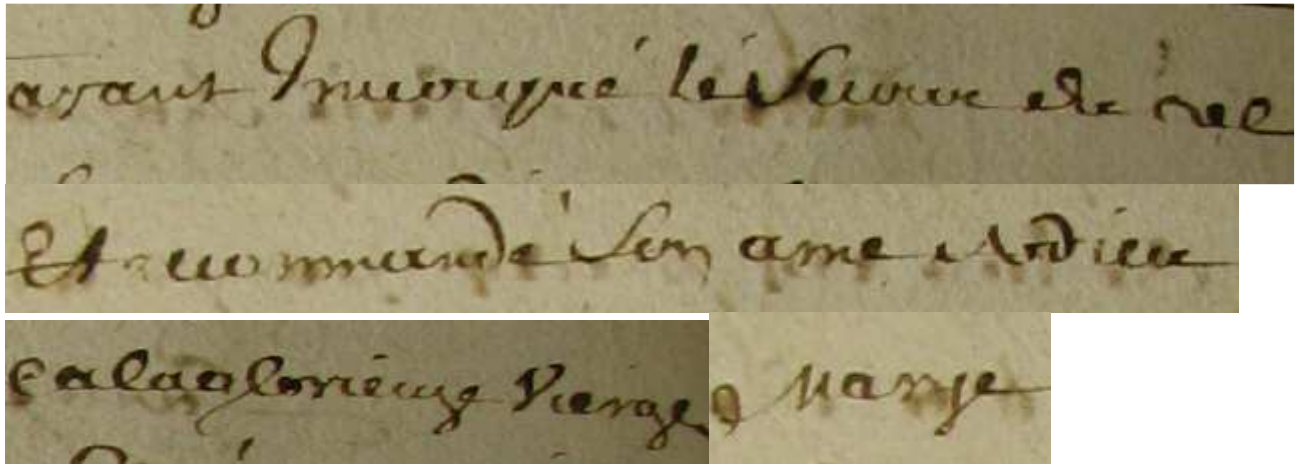 ayant Invoqué le Secour de cel
Et recommandé Son ame A dieu
e a la glorieuze Vierge Marye